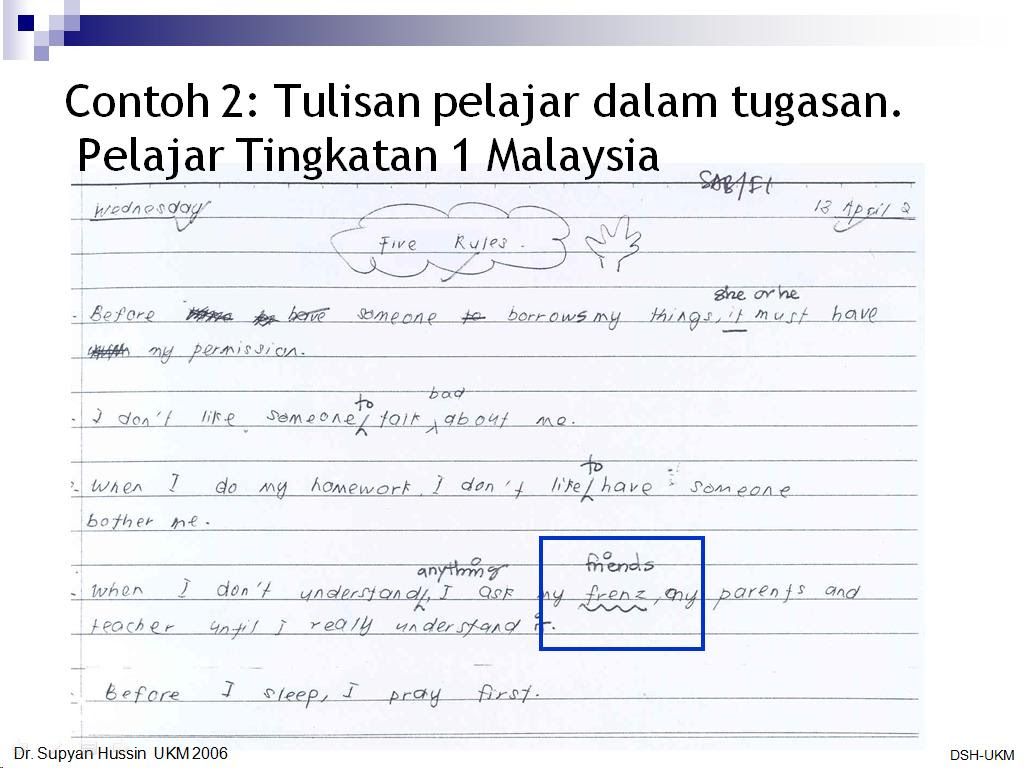 Contoh 2: Tulisan pelajar dalam tugasan.
Pelajar Tingkatan 1 Malaysia
SAB/F1
Wednesday
13 April 2
Five Rules.
she or he
Before to have someone to borrows my things, it must have
my permission.
to bad
I don't like someone talk about me.
to
When I do my homework, I don't like have someone
bother me.
anything friends
When I don't understand, I ask my frenz, my parents and
teacher until I really understand it.
Before I sleep, I pray first.
Dr. Supyan Hussin UKM 2006
DSH-UKM